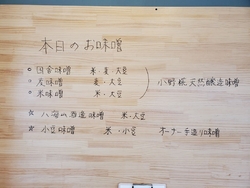 本日のお味噌
○ 田舎味噌 米・麦・大豆
○ 麦味噌 麦・大豆
○ 米味噌 米・大豆
小野糀天然醸造味噌
☆ 八海山 味噌 米・大豆
☆ 小豆味噌 米・小豆 オーナー手造り味噌